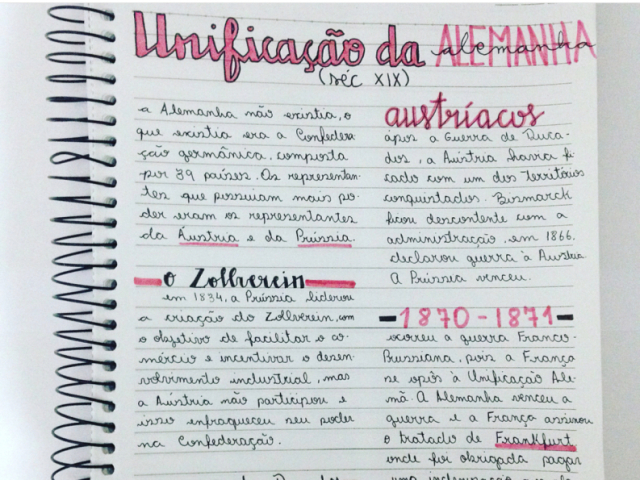 Unificação da ALEMANHA
alemanha
(séc XIX)
a Alemanha não existia, o
que existia era a Confedera
ção germânica, composta
por 39 países. Os representan-
tes que possuiam mais po-
der eram os representantes
da Áustria e da Prússia.
o Zollverein
em 1834, a Prússia liderou
a criação do Zollverein, com
o objetivo de facilitar o co-
mércio e incentivar o desen-
volvimento industrial, mas
a Áustria não participou e
isso enfraqueceu seu poder
na Confederação.
austríacos
após a Guerra de Duca-
dos, a Áustria havia fi-
cado com um dos territórios
conquistados. Bismarck
ficou descontente com a
administração, em 1866,
declarou guerra à Áustria.
A Prússia venceu.
1870-1871
ocorreu a guerra Franco-
Prussiana, pois a França
se opôs à Unificação Ale-
mã. A Alemanha venceu a
guerra e a França assinou
o tratado de Frankfurt
onde foi obrigada pagar
uma indenização